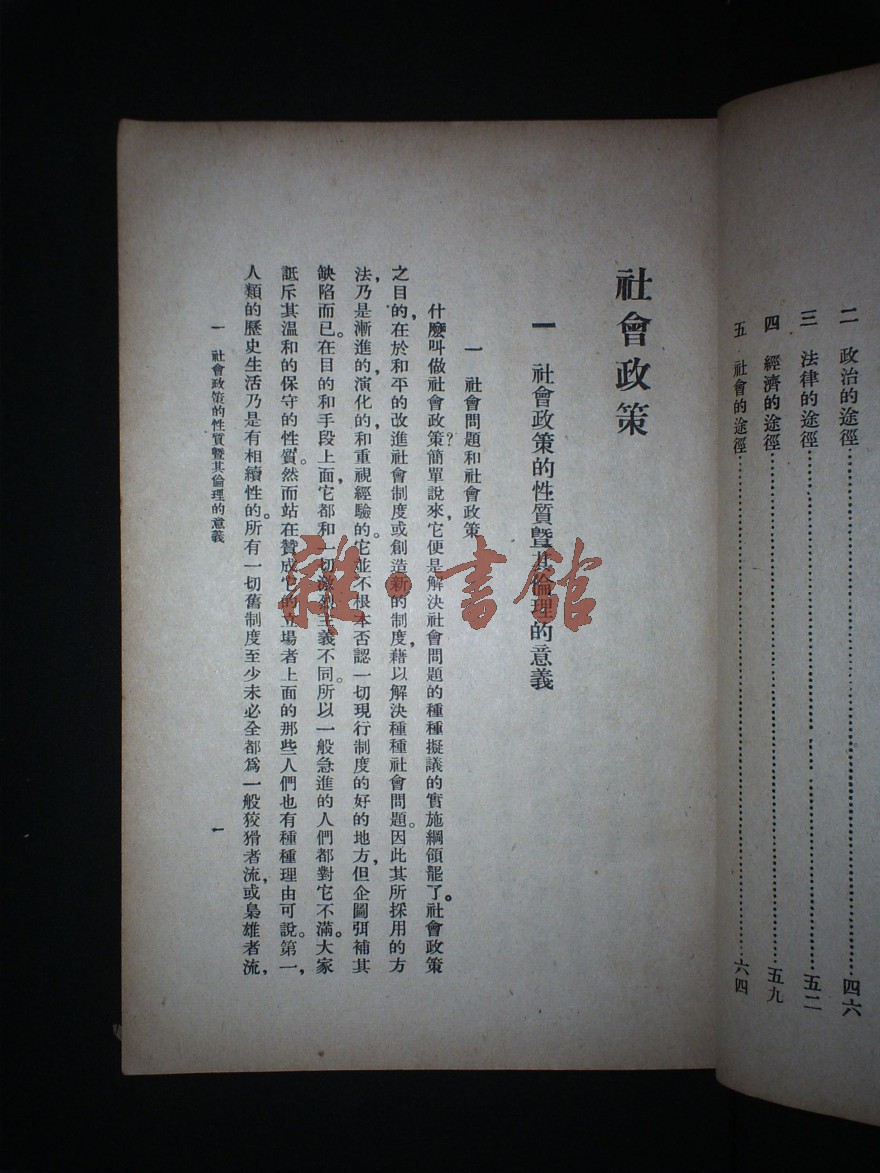 二　政治的途徑……………四六
三　法律的途徑……………五二
四　經濟的途徑……………五九
五　社會的途徑……………六四
社會政策
一　社會政策的性質暨其倫理的意義
一　社會問題和社會政策
什麼叫做社會政策？簡單說來，它便是解決社會問題的種種擬議的實施綱領罷了。社會政策
之目的，在於和平的改進社會制度或創造新的制度，藉以解決種種社會問題。因此其所採用的方
法，乃是漸進的，演化的，和重視經驗的。它並不根本否認一切現行制度的好的地方，但企圖弭補其
缺陷而已。在目的和手段上面，它都和一切激烈主義不同。所以一般急進的人們都對它不滿。大家
詆斥其溫和的保守的性質。然而站在贊成它的立場者上面的那些人們也有種種理由可說。第一，
人類的歷史生活乃是有相續性的。所有一切舊制度至少未必全都為一般狡猾者流，或梟雄者流，
一　社會政策的性質暨其倫理的意義
一
雜·書館